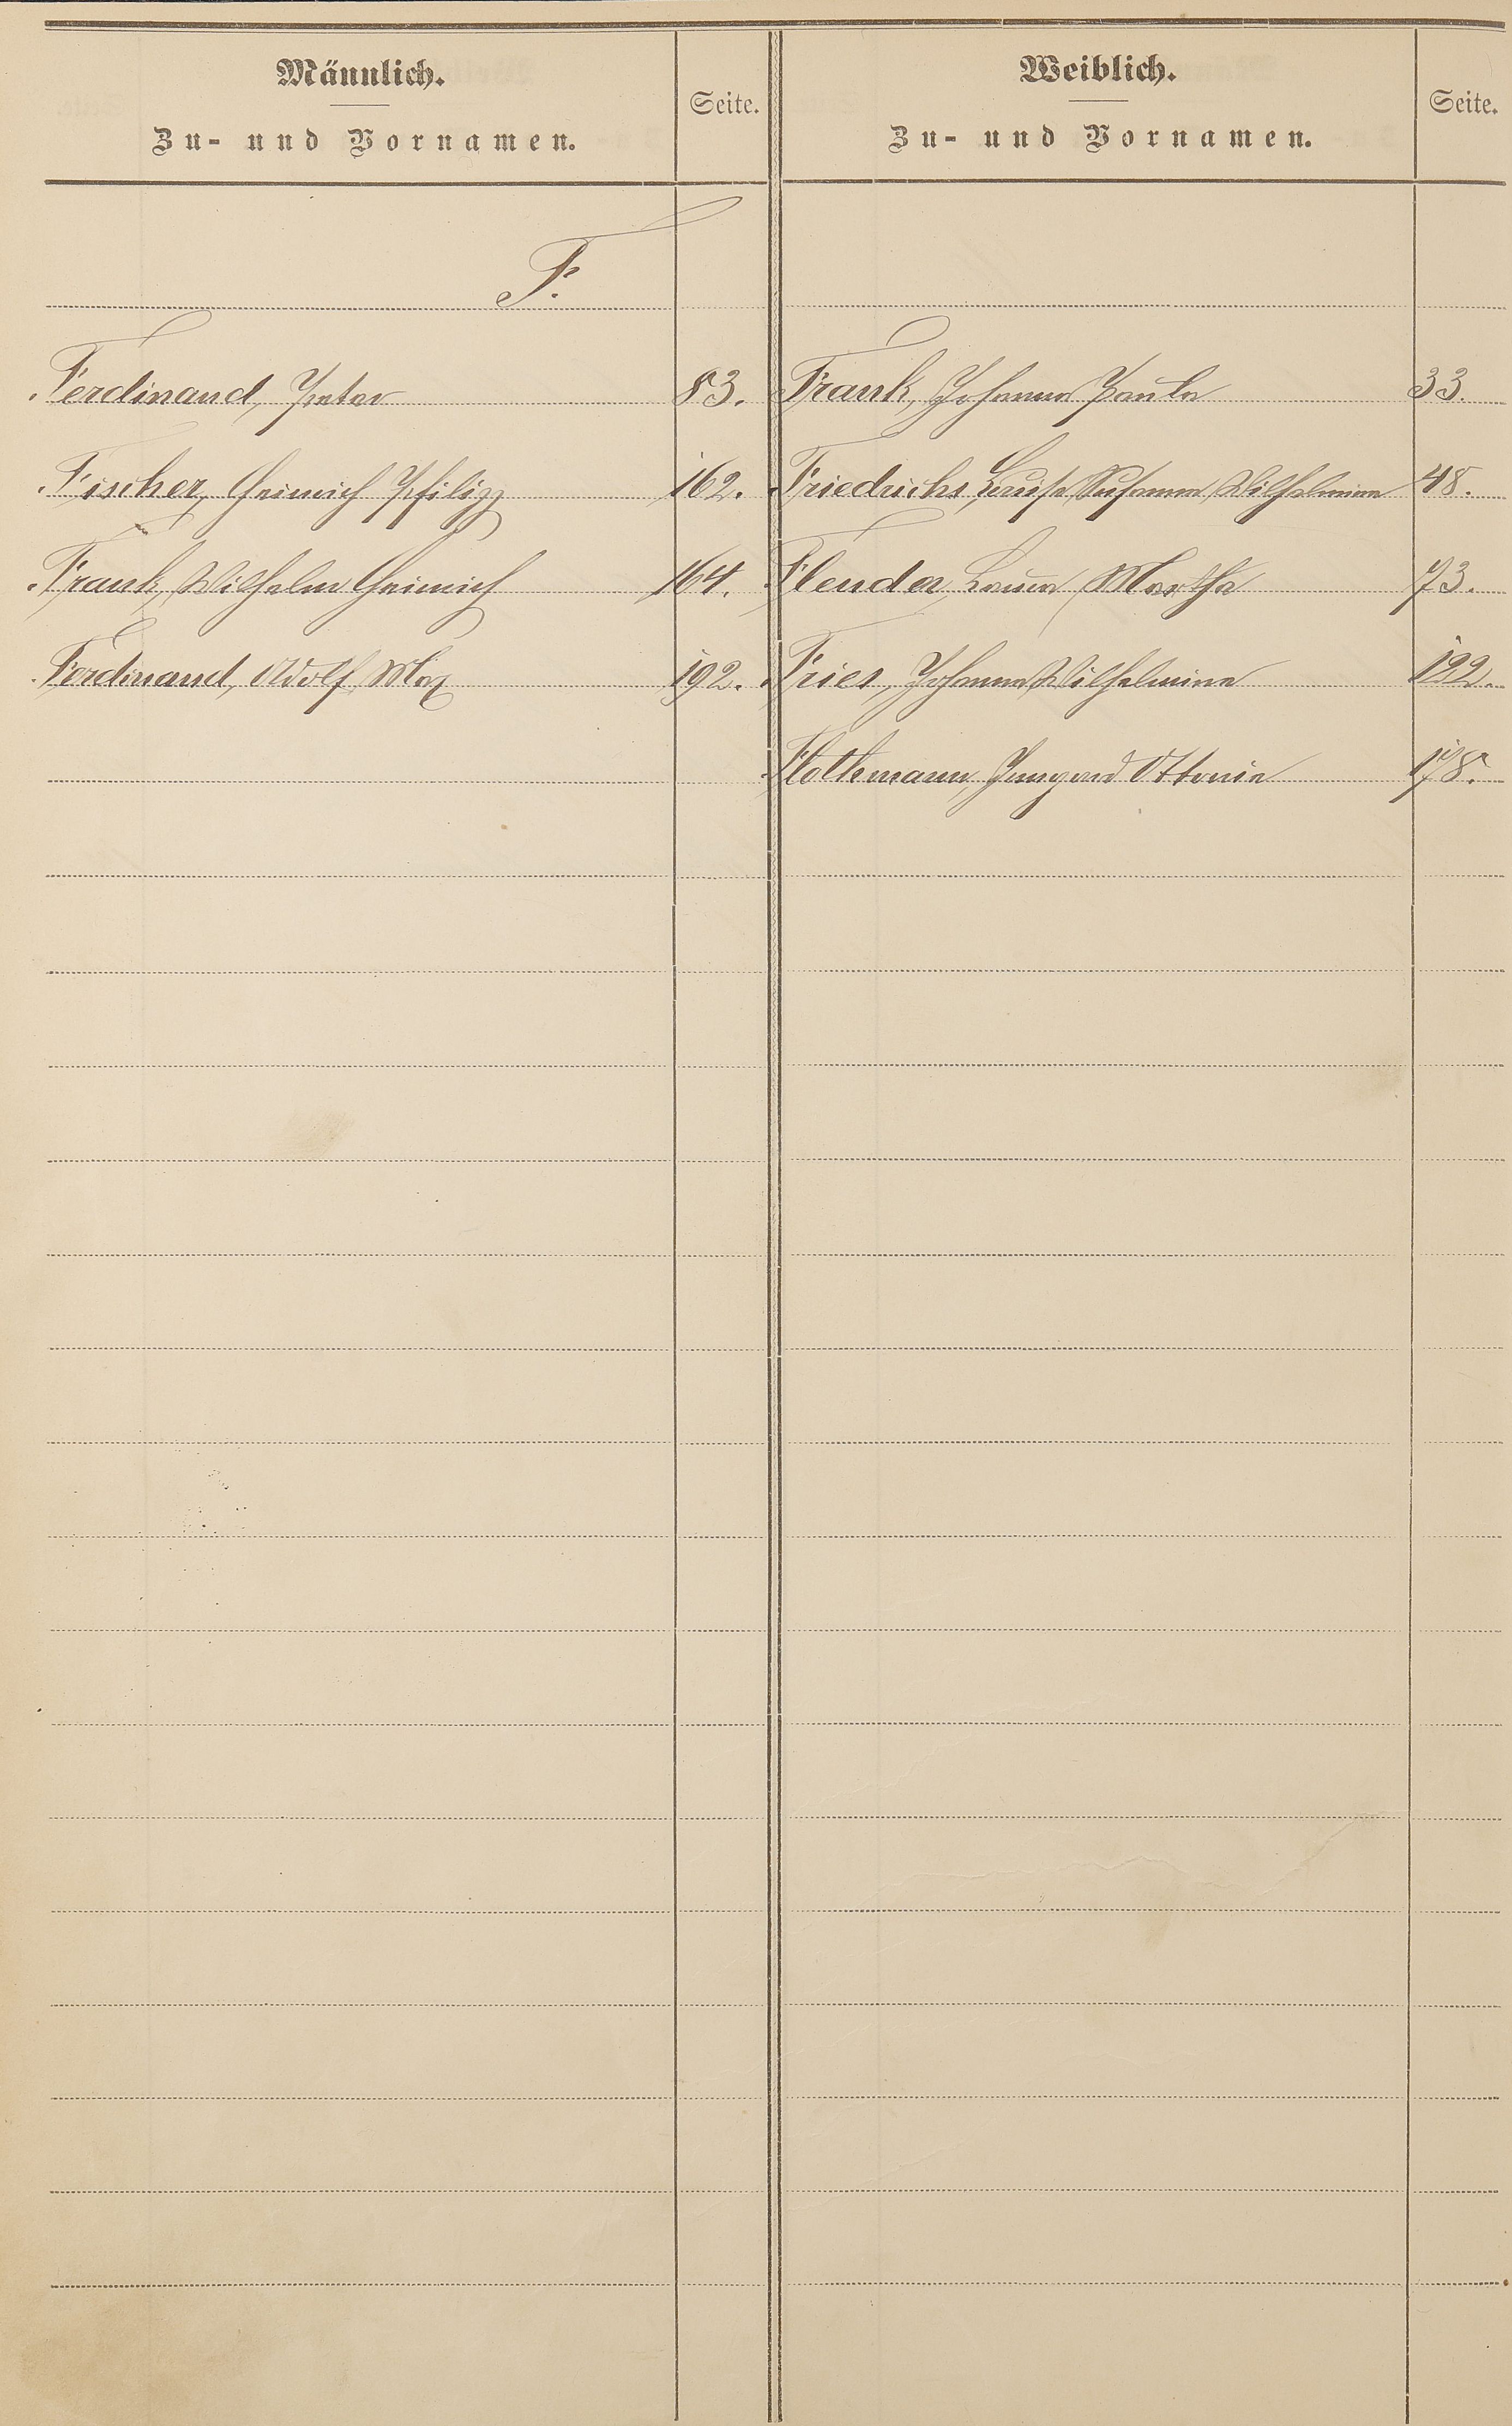 Männlich.
Zu- und Vornamen.
Seite.
Weiblich.
Zu- und Vornamen.
Seite.
F.
Ferdinand, Peter 83.
Frank, Johanna Paula 33.
Fischer, Heinrich Philipp 162.
Friedrichs, Louise Susanna Wilhelmine 48.
Frank, Wilhelm Heinrich 164.
Flender, Laura Martha 73.
Ferdinand, Adolf Max 192.
Fries, Johanna Wilhelmine 122.
Flothmann, Ottonie 178.